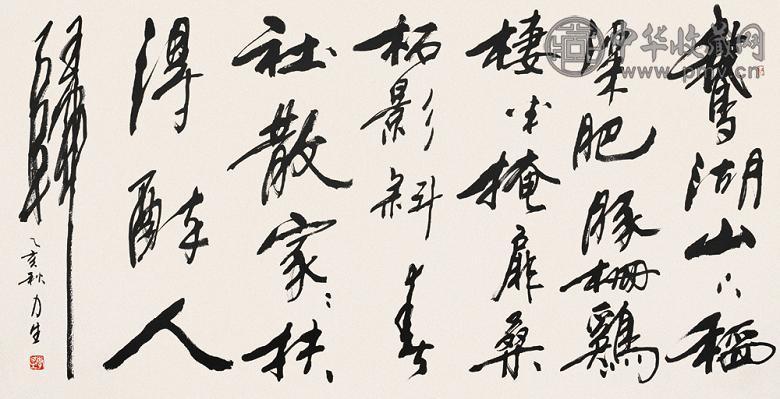 鵝湖山下稻
粱肥豚柵鷄
棲半掩扉桑
柘影斜春
社散家々扶
得醉人
歸
乙亥秋 力生
中华收藏网
www.pmv.cn